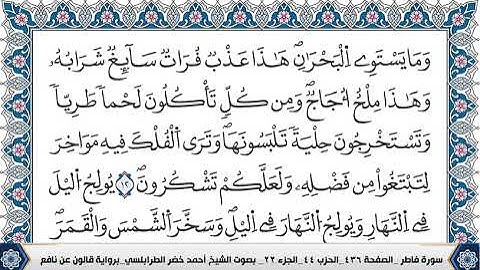 وَمَا يَسْتَوِے اِ۬لْبَحْرَٰنِ هَٰذَا عَذْبٞ فُرَاتٞ سَآئِغٞ شَرَابُهُۥ
وَهَٰذَا مِلْحٌ اُجَاجٞۖ وَمِن كُلّٖ تَأْكُلُونَ لَحْماٗ طَرِيّاٗ
وَتَسْتَخْرِجُونَ حِلْيَةٗ تَلْبَسُونَهَاۖ وَتَرَى اَ۬لْفُلْكَ فِيهِ مَوَاخِرَ
لِتَبْتَغُوا مِن فَضْلِهِۦ وَلَعَلَّكُمْ تَشْكُرُونَۖ ١٢ يُولِجُ اُ۬ليْلَ
فِے اِ۬لنَّهَارِ وَيُولِجُ اُ۬لنَّهَارَ فِے اِ۬ليْلِ وَسَخَّرَ اَ۬لشَّمْسَ وَالْقَمَرَۖ
سورة فاطر _الصفحة ٤٣٦_ الحزب ٤٤_ الجزء ٢٢_ بصوت الشيخ أحمد خضر الطرابلسي_ برواية قالون عن نافع